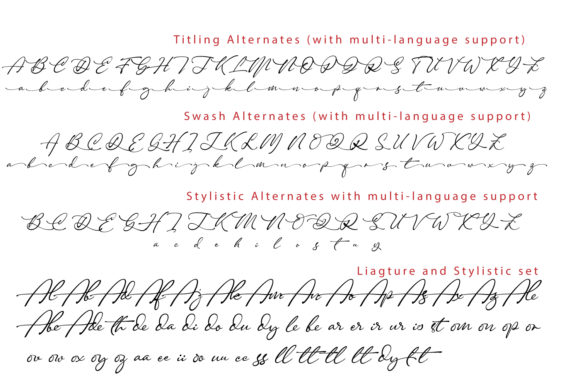 Titling Alternates (with multi-language support)
A B C D E F G H I J K L M N O P Q R S T U V W X Y Z
a b c d e f g h i j k l m n o p q r s t u v w x y z
Swash Alternates (with multi-language support)
A B C D E G H I J K L M N O Q R S U V W X Y Z
a b c d e f g h i j k l m n o p q r s t u v w x y z
Stylistic Alternates with multi-language support
B C D E G H I J K L M N O P Q R S U V W X Y Z
a e d e h i l o s t u y
Liagture and Stylistic set
Al Ab Ad Af Aj Ak Am Av Ao Ap As Ax Az Ale
Abe Ade th de da di do du dy le be ar er ir ur is st om on op or
ov ow ox oy oz aa ee ii oo uu cc ss ll tt tl lt dy ft